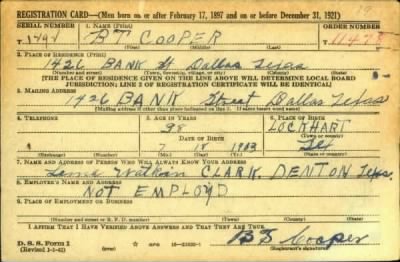 REGISTRATION CARD—(Men born on or after February 17, 1897 and on or before December 31, 1921)
SERIAL NUMBER 1. NAME (Print) ORDER NUMBER
BT COOPER
(First) (Middle) (Last)
2. PLACE OF RESIDENCE (Print)
1426 BANK St Dallas Texas
(Number and street) (Town, township, village, or city) (County) (State)
[THE PLACE OF RESIDENCE GIVEN ON THE LINE ABOVE WILL DETERMINE LOCAL BOARD
JURISDICTION; LINE 2 OF REGISTRATION CERTIFICATE WILL BE IDENTICAL]
3. MAILING ADDRESS
1426 BANK Street Dallas Texas
[Mailing address if other than place indicated on line 2. If same insert word same]
4. TELEPHONE 5. AGE IN YEARS 6. PLACE OF BIRTH
38 LOCKHART
DATE OF BIRTH (Town or county)
7 18 1903 Tex
(Exchange) (Number) (Mo.) (Day) (Yr.) (State or country)
7. NAME AND ADDRESS OF PERSON WHO WILL ALWAYS KNOW YOUR ADDRESS
CLARK, DENTON Texas
8. EMPLOYER'S NAME AND ADDRESS
NOT EMPLOYD
9. PLACE OF EMPLOYMENT OR BUSINESS
(Number and street or R. F. D. number) (Town) (County) (State)
I AFFIRM THAT I HAVE VERIFIED ABOVE ANSWERS AND THAT THEY ARE TRUE.
D. S. S. Form 1
(Revised 1-1-42) (over)
BT Cooper
(Registrant's signature)